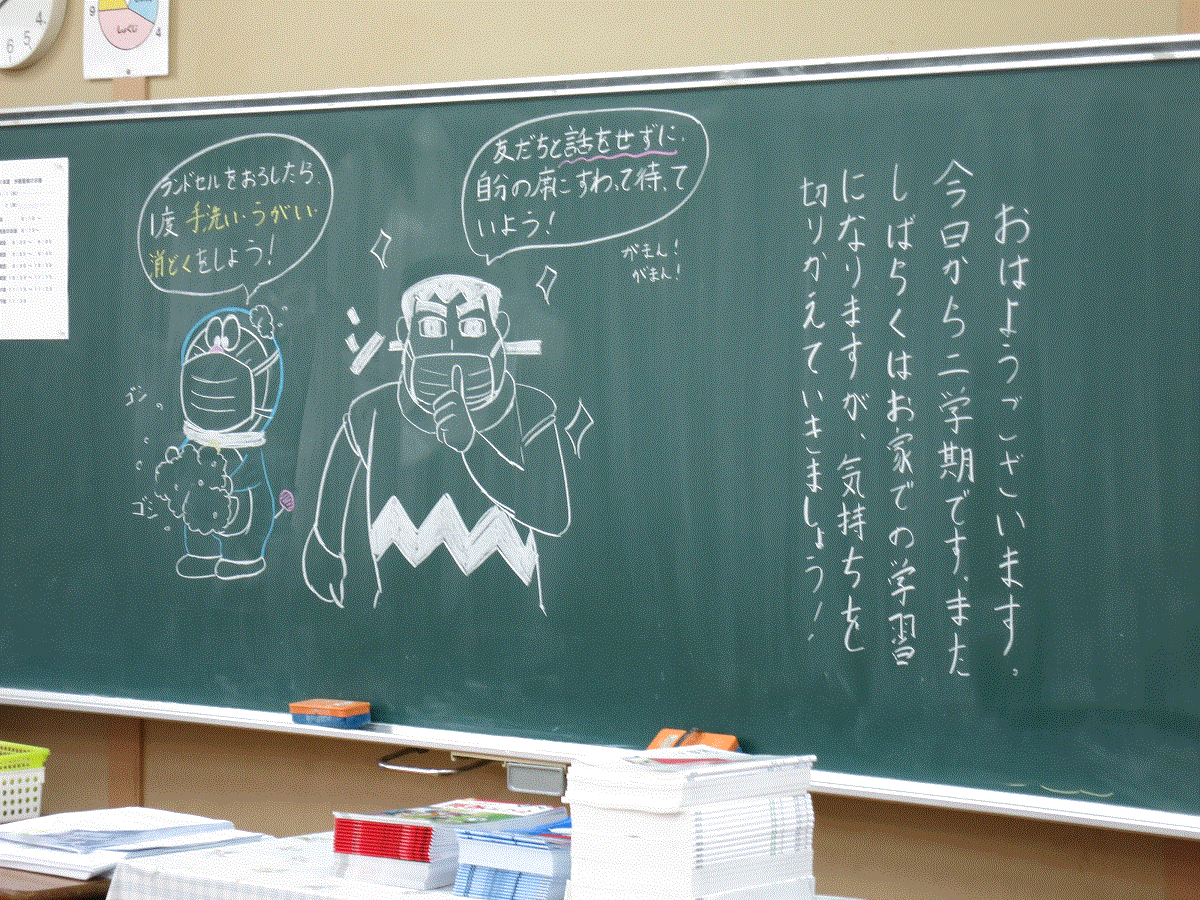 おはようございます。
今日から二学期です。また
しばらくはお家での学習
になりますが、気持ちを
切りかえていきましょう!
友だちと話をせずに、
自分の席にすわって待って
いよう!
がまん!
がまん!
シー
ランドセルをおろしたら、
1度 手洗い・うがい・
消どくをしよう!
ゴシ
ゴシ
9
4
しゅくじ
4
5
6